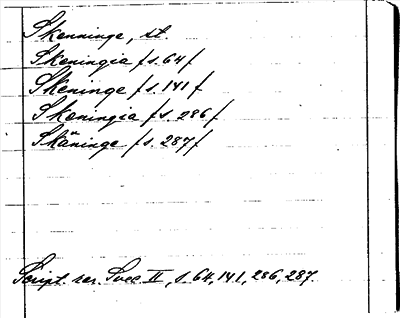 Skenninge, st.
Skeningia /s. 64/
Skeninge /s. 141/
Skeningia /s. 286/
Skäninge /s. 287/
Script. rer. Svec. II, s. 64, 141, 286, 287.